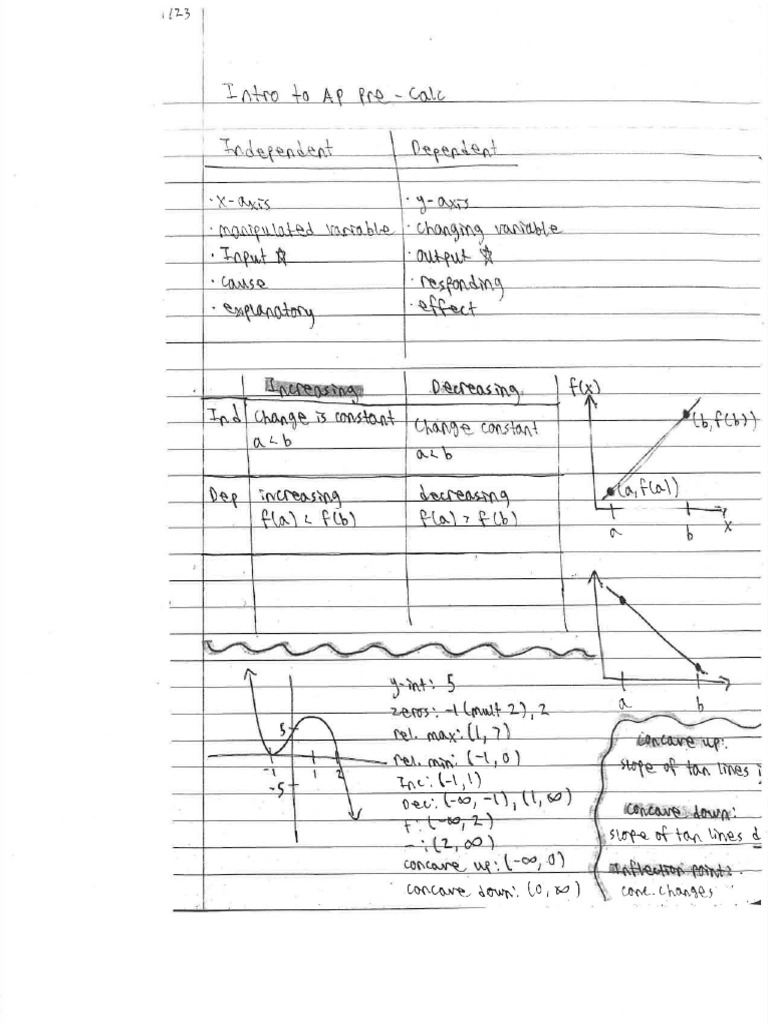 1/23
Intro to AP Pre-Calc
Independent Dependent
• x-axis • y-axis
• manipulated variable • changing variable
• Input ☆ • output ☆
• cause • responding
• explanatory • effect
Increasing Decreasing f(x)
Ind Change is constant Change constant (b, f(b))
a < b a < b
Dep increasing decreasing (a, f(a))
f(a) < f(b) f(a) > f(b) a b x
a b
y-int: 5
zeros: -1 (mult 2), 2
5 rel. max: (1, 7) concave up:
-1 1 2 rel. min: (-1, 0) slope of tan lines
-5 Inc: (-1, 1)
Dec: (-∞, -1), (1, ∞) concave down:
+: (-∞, 2) slope of tan lines d
-: (2, ∞)
concave up: (-∞, 0) inflection point:
concave down: (0, ∞) conc. changes